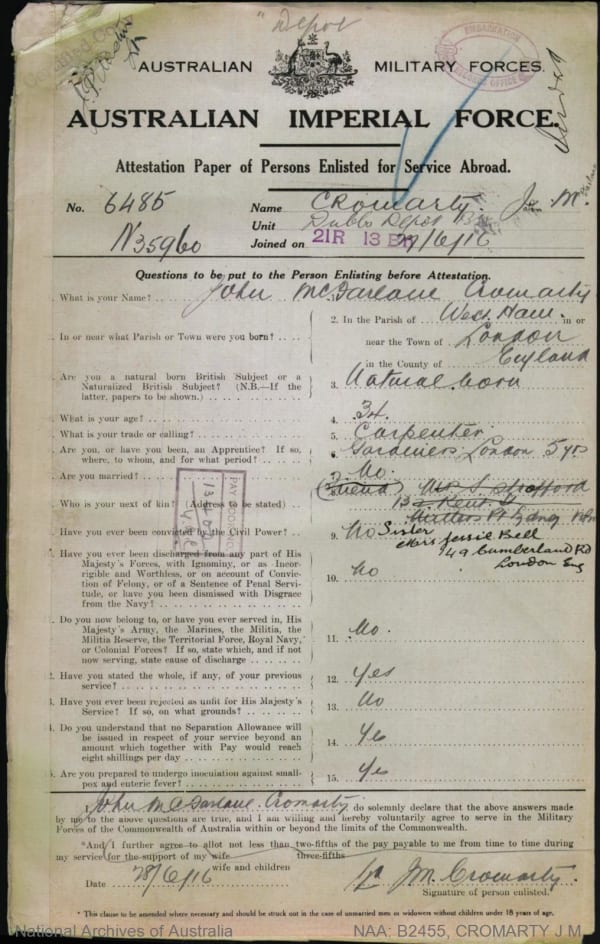 "Depot
AUSTRALIAN MILITARY FORCES.
EMBARKATION
AUSTRALIAN IMPERIAL FORCE.
Attestation Paper of Persons Enlisted for Service Abroad.
No. 6485 Name CROMARTY. J. M.
N35960 Unit Dubbo Depot Bn
Joined on 21R 13 Bn /6/16
Questions to be put to the Person Enlisting before Attestation.
What is your Name? 1. John McFarlane Cromarty
In or near what Parish or Town were you born? 2. In the Parish of West Ham in or
near the Town of London
in the County of England
Are you a natural born British Subject or a
Naturalized British Subject? (N.B.—If the
latter, papers to be shown.) 3. Natural born
What is your age? 4. 34.
What is your trade or calling? 5. Carpenter
Are you, or have you been, an Apprentice? If so,
where, to whom, and for what period? 6. Gardiners, London 5 yrs
Are you married? 7. No.
Who is your next of kin? (Address to be stated) (Friend) Mrs S. Strafford
13 Kent
Millers Pt Sydney NSW
Sister
Mrs Jessie Bell
49 Cumberland Rd
London Eng
PAY
Have you ever been convicted by the Civil Power? 9. No
Have you ever been discharged from any part of His
Majesty's Forces, with Ignominy, or as Incor-
rigible and Worthless, or on account of Convic-
tion of Felony, or of a Sentence of Penal Servi-
tude, or have you been dismissed with Disgrace
from the Navy? 10. No
Do you now belong to, or have you ever served in, His
Majesty's Army, the Marines, the Militia, the
Militia Reserve, the Territorial Force, Royal Navy,
or Colonial Forces? If so, state which, and if not
now serving, state cause of discharge 11. No.
Have you stated the whole, if any, of your previous
service? 12. Yes
Have you ever been rejected as unfit for His Majesty's
Service? If so, on what grounds? 13. No
Do you understand that no Separation Allowance will
be issued in respect of your service beyond an
amount which together with Pay would reach
eight shillings per day 14. Yes
Are you prepared to undergo inoculation against small-
pox and enteric fever? 15. Yes
I, John McFarlane Cromarty do solemnly declare that the above answers made
by me to the above questions are true, and I am willing and hereby voluntarily agree to serve in the Military
Forces of the Commonwealth of Australia within or beyond the limits of the Commonwealth.
*And I further agree to allot not less than two-fifths of the pay payable to me from time to time during
three-fifths
my service for the support of my wife
wife and children
Date 28/6/16 J.M. Cromarty.
Signature of person enlisted.
* This clause to be amended where necessary and should be struck out in the case of unmarried men or widowers without children under 18 years of age.
National Archives of Australia NAA: B2455, CROMARTY J M